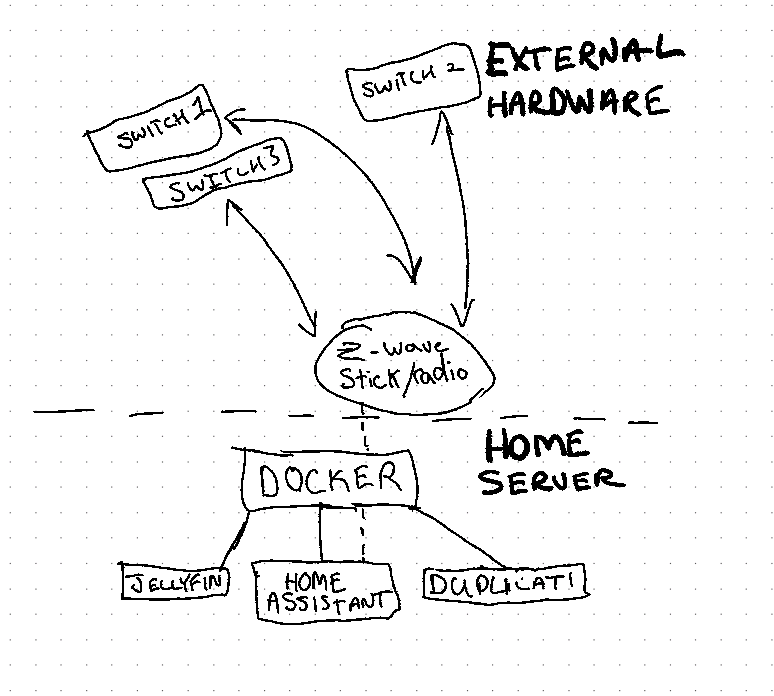 SWITCH 2
EXTERNAL
HARDWARE
SWITCH 1
SWITCH 3
Z-wave
Stick/radio
HOME
SERVER
DOCKER
JELLYFIN
HOME
ASSISTANT
DUPLICATI